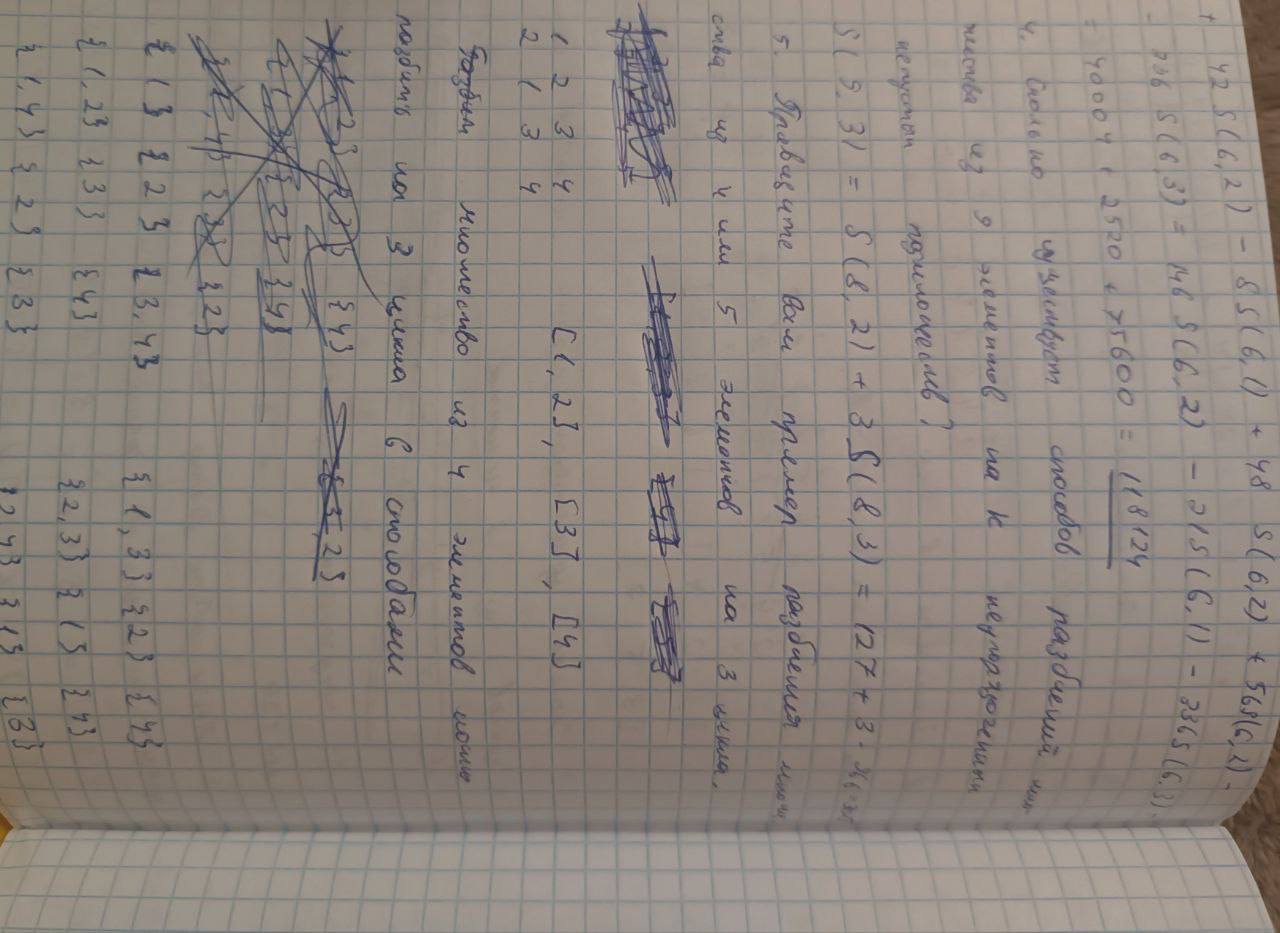 + 42 S(6,2) - 8 S(6,1) + 48 S(6,2) + 56S(6,1) -
- 336 S(6,3) = 146 S(6,2) - 21S(6,1) - 336S(6,3)
= 40004 + 2520 + 75600 = 118124
4. Сколько существует способов разбиений мно-
жества из 9 элементов на к неупорядоченных
непустых подмножеств?
S(9,3) = S(8,2) + 3 S(8,3) = 127 + 3 ·
5. Приведите вам пример разбиения множе
ства из 4 или 5 элементов на 3 цикла.
1 2 3 4 [1,2], [3], [4]
2 1 3 4
Разбием множество из 4 элементов можно
разбить на 3 цикла 6 способами
{1} {2} {3,4} {1,3} {2} {4}
{1,2} {3} {4} {2,3} {1} {4}
{1,4} {2} {3} {2,4} {1} {3}